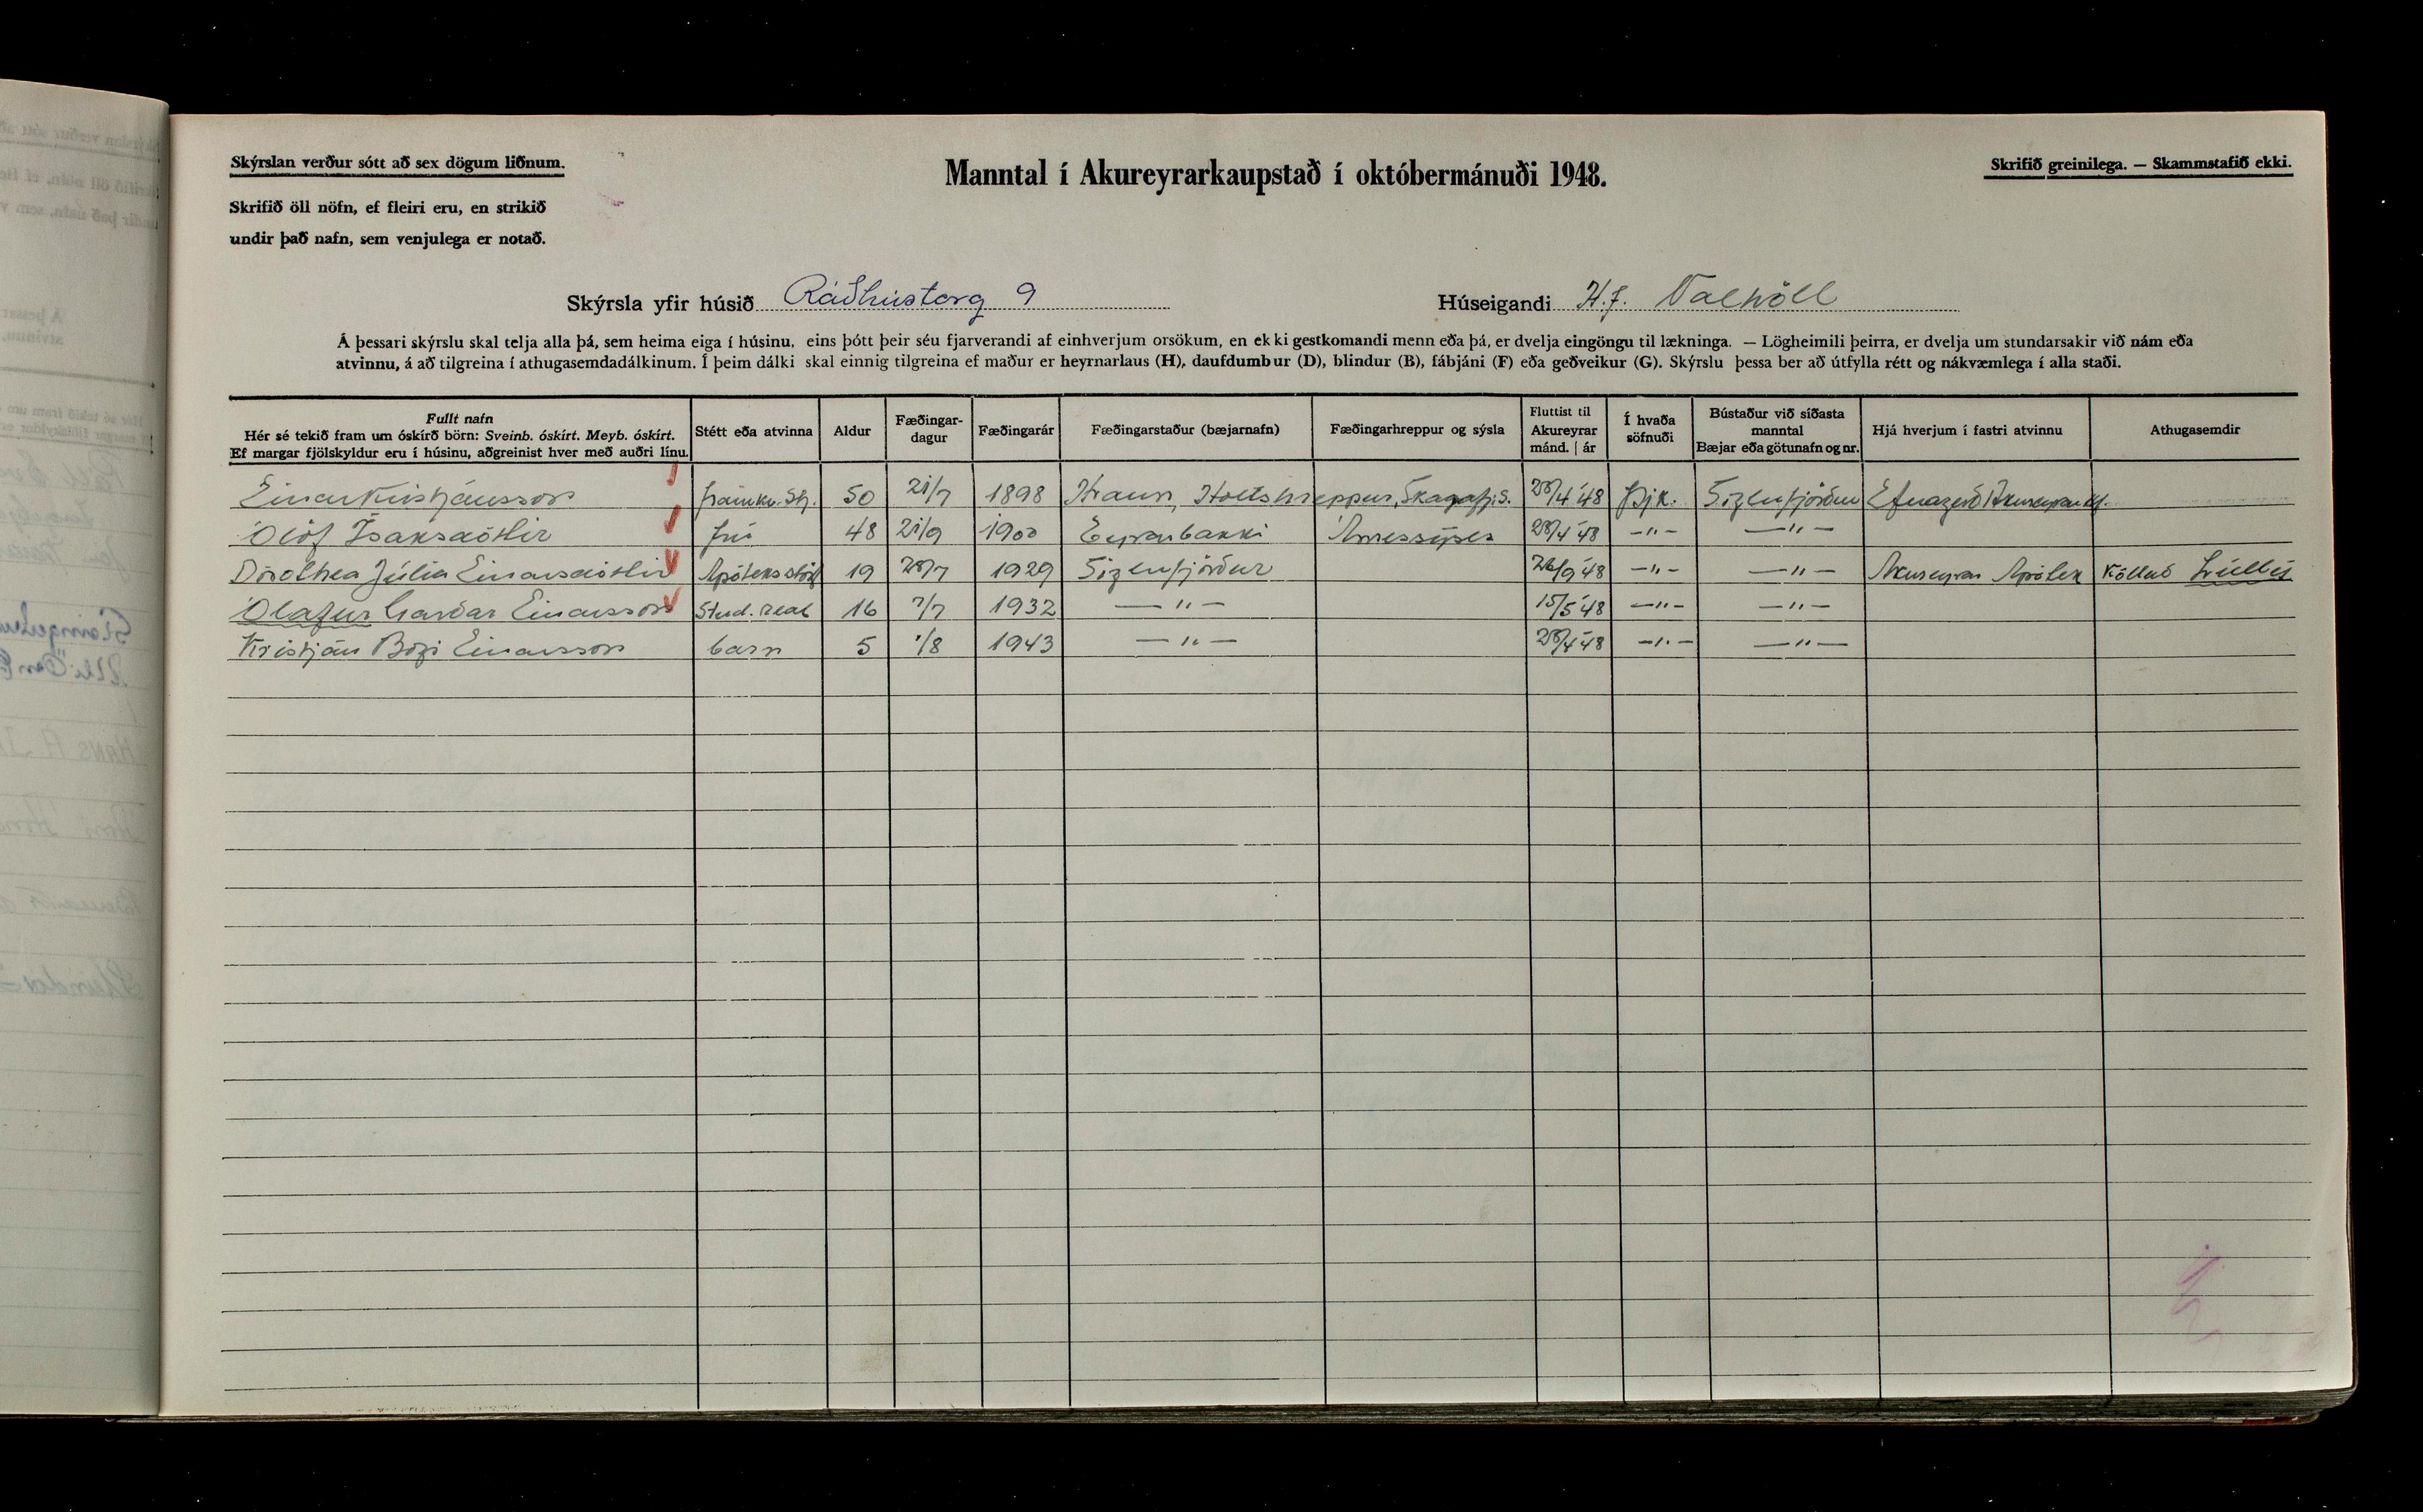 Skýrslan verður sótt að sex dögum liðnum.
Manntal í Akureyrarkaupstað í októbermánuði 1948.
Skrifið greinilega. — Skammstafið ekki.
Skrifið öll nöfn, ef fleiri eru, en strikið
undir það nafn, sem venjulega er notað.
Skýrsla yfir húsið Ráðhústorg 9 Húseigandi H.f. Valhöll
Á þessari skýrslu skal telja alla þá, sem heima eiga í húsinu, eins þótt þeir séu fjarverandi af einhverjum orsökum, en ekki gestkomandi menn eða þá, er dvelja eingöngu til lækninga. — Lögheimili þeirra, er dvelja um stundarsakir við nám eða
atvinnu, á að tilgreina í athugasemdadálkinum. Í þeim dálki skal einnig tilgreina ef maður er heyrnarlaus (H), daufdumbur (D), blindur (B), fábjáni (F) eða geðveikur (G). Skýrslu þessa ber að útfylla rétt og nákvæmlega í alla staði.
Fullt nafn
Hér sé tekið fram um óskírð börn: Sveinb. óskírt. Meyb. óskírt.
Ef margar fjölskyldur eru í húsinu, aðgreinist hver með auðri línu.
Stétt eða atvinna
Aldur
Fæðingar-
dagur
Fæðingarár
Fæðingarstaður (bæjarnafn)
Fæðingarhreppur og sýsla
Fluttist til
Akureyrar
mánd. | ár
Í hvaða
söfnuði
Bústaður við síðasta
manntal
Bæjar eða götunafn og nr.
Hjá hverjum í fastri atvinnu
Athugasemdir
Einar Kristjánsson framkv.stj. 50 21/7 1898 Hraun, Holtshreppur, Skagafj.s. 28/4 '48 Þjk. Siglufjörður Efnagerð Akureyrar hf.
Ólöf Ísaksdóttir frú 48 21/9 1900 Eyrarbakki Árnessýsla 28/4 '48 —"— —"—
Dórothea Júlía Einarsdóttir Apóteksstúlk 19 28/7 1929 Siglufjörður 26/9 '48 —"— —"— Akureyrar Apótek Kölluð Lúllý
Ólafur Garðar Einarsson Stud. real 16 7/7 1932 —"— 15/5 '48 —"— —"—
Kristján Bogi Einarsson barn 5 1/8 1943 —"— 28/4 '48 —"— —"—